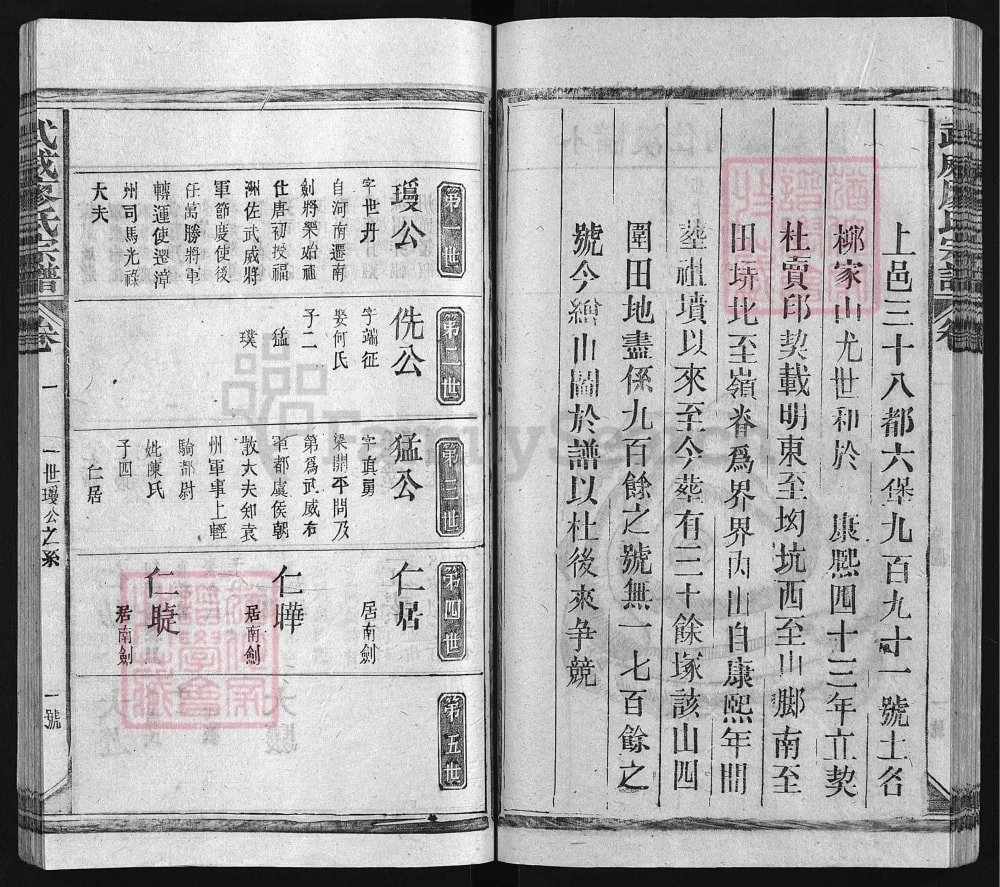 上邑三十八都六堡九百九十一號土名
柳家山尤世和於　康熙四十三年立契
杜賣印契載明東至坳坑西至山脚南至
田塝北至嶺脊爲界界內山自康熙年間
塟祖墳以來至今塟有三十餘塚該山四
圍田地盡係九百餘之號無一七百餘之
號今繪山圖於譜以杜後來争競
武威廖氏宗譜
卷一
一世瓊公之系
一號
第一世
瓊公
字世丹
自河南遷南
劍將樂始祖
仕唐初授福
洲佐武威將
軍節慶使後
任萬勝將軍
轉運使遷漳
州司馬光祿
大夫
第二世
侁公
字端征
娶何氏
子二
猛
璞
第三世
猛公
字真勇
梁開平問及
第爲武威右
軍都虞侯朝
散大夫知袁
州軍事上輕
騎都尉
妣陳氏
子四
仁居
第四世
仁居
居南劍
仁曄
居南劍
仁晸
居南劍
第五世
FamilySearch